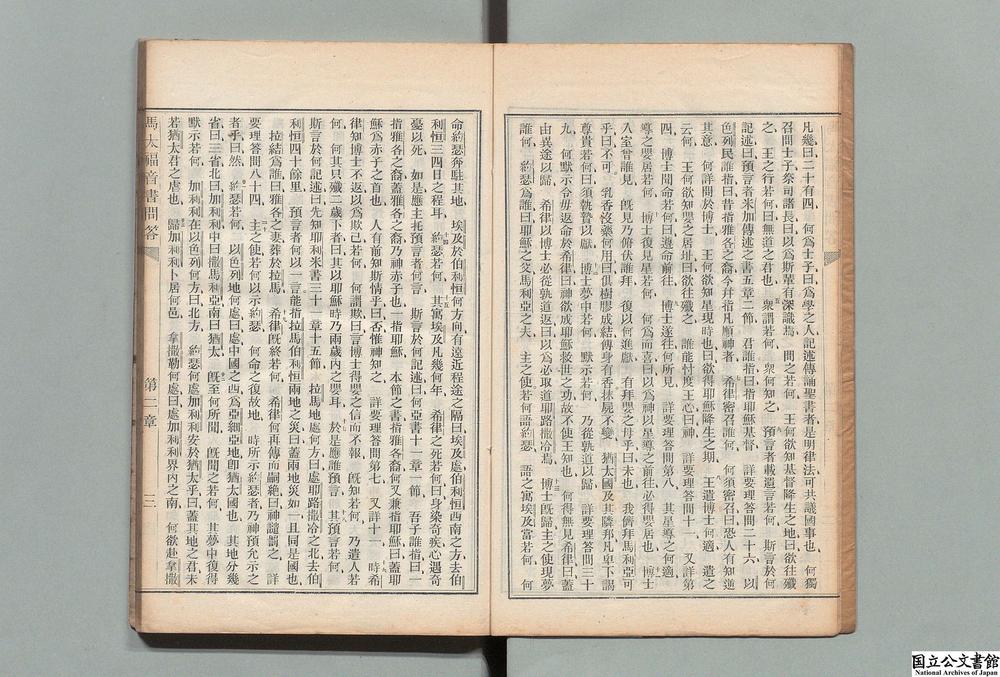 凡幾曰二十有四、何爲士子曰爲學之人記述傳誦聖書者是明律法可共議國事也、何獨
召問士子祭司諸長曰以爲斯輩有深識焉、問之若何、王何欲知基督降生之地曰欲往殲
之、王之行若何曰無道之君也、衆謂若何、衆何知之、預言者載遺言若何、斯言於何
記述曰預言者米加傳述之書五章二節、君誰指曰指耶穌基督、詳要理答問二十六、以
色列民誰指曰昔指雅各之裔今幷指凡順神者、希律密召誰何、何須密召曰恐人有知逆
其意、何詳問於博士、王何欲知星現時也曰欲得耶穌降生之期、王遣博士何適、遣之
云何、王何欲知嬰之居址曰欲往殲之、誰能忖度王心曰神、詳要理答問十一、又詳第
四、博士聞命若何曰遵命前往、博士遂往何所見、詳要理答問第八、其星導之何適、
導之嬰居若何、博士復見星若何、何爲而喜曰以爲神以星導之前往必得嬰居也、博士
入室曾誰見、旣見乃俯伏誰拜、復以何進獻、有拜嬰之母乎曰未也、我儕拜馬利亞可
乎曰不可、乳香沒藥何用曰俱樹膠成結傅身有香抹屍不變、猶太國及其隣邦凡卑下謁
尊貴若何曰須執贄以獻、博士夢中若何、默示若何、乃從孰道以歸、詳要理答問三十
九、何默示令毋返命於希律曰神欲成耶穌救世之功故不使王知也、何得無見希律曰蓋
由異途以歸、希律以博士必從孰道返曰以爲必取道耶路撒冷焉、博士旣歸主之使現夢
誰何、約瑟爲誰曰耶穌之父馬利亞之夫、主之使若何語約瑟、語之寓埃及當若何、何
命約瑟奔駐其地、埃及於伯利恒何方向、有遠近程途之隔曰埃及處伯利恒西南之方去伯
利恒三四日之程耳、約瑟若何、其寓埃及凡幾何年、希律之死若何曰身染奇疾心遇奇
憂以死、如是應主托預言者何言、斯言於何記述曰何亞書十一章一節、吾子誰指曰一
指雅各之裔蓋雅各之裔乃神赤子也一指耶穌、本節之書指雅各裔何又兼指耶穌曰蓋耶
穌爲赤子之首也、人有前知斯情乎曰否惟神知之、詳要理答問第七、又詳十一、時希
律知博士不返以爲欺己若何、何謂欺曰言博士得嬰之信而不報、旣知若何、乃遣人若
何、何其只殲二歲下者曰其以耶穌時乃兩歲內之嬰耳、於是應誰預言、其預言若何、
斯言於何記述曰先知耶利米書三十一章十五節、拉馬地處何方曰處耶路撒冷之北去伯
利恒四十餘里、預言者何以一言能指拉馬伯利恒兩地之災曰蓋兩地災如一且同是國也、
拉結爲誰曰雅各之妻葬於拉馬、希律旣終若何、希律何再傳而嗣絕曰神譴罰之、詳
要理答問八十四、主之使若何以示約瑟、何命之復故地、時所示約瑟者乃神預允示之
者乎曰然、約瑟若何、以色列地何處曰處中國之西爲亞細亞地卽猶太國也、其地分幾
省曰三省北曰加利利中曰撒馬利亞南曰猶太、旣至何所聞、旣聞之若何、其夢中復得
默示若何、加利利在以色列何方曰北方、約瑟何處加利利安於猶太乎曰蓋其地之君未
若猶太君之虐也、歸加利利卜居何邑、拿撒勒何處曰處加利利界內之南、何欲赴拿撒
馬太福音書問答
第二章
三
国立公文書館
National Archives of Japan